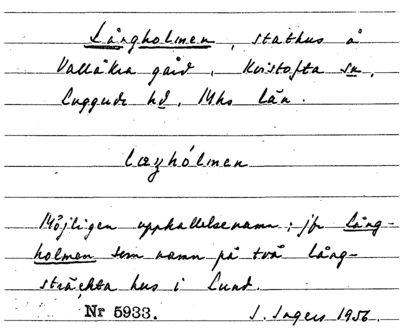 Långholmen, stathus å
Vallåkra gård, Kvistofta sn,
Luggude hd, Mhs län.
lœŋhólmen
Möjligen uppkallelsenamn; jfr Lång-
holmen som namn på två lång-
sträckta hus i Lund.
Nr 5933. I. Ingers 1956.